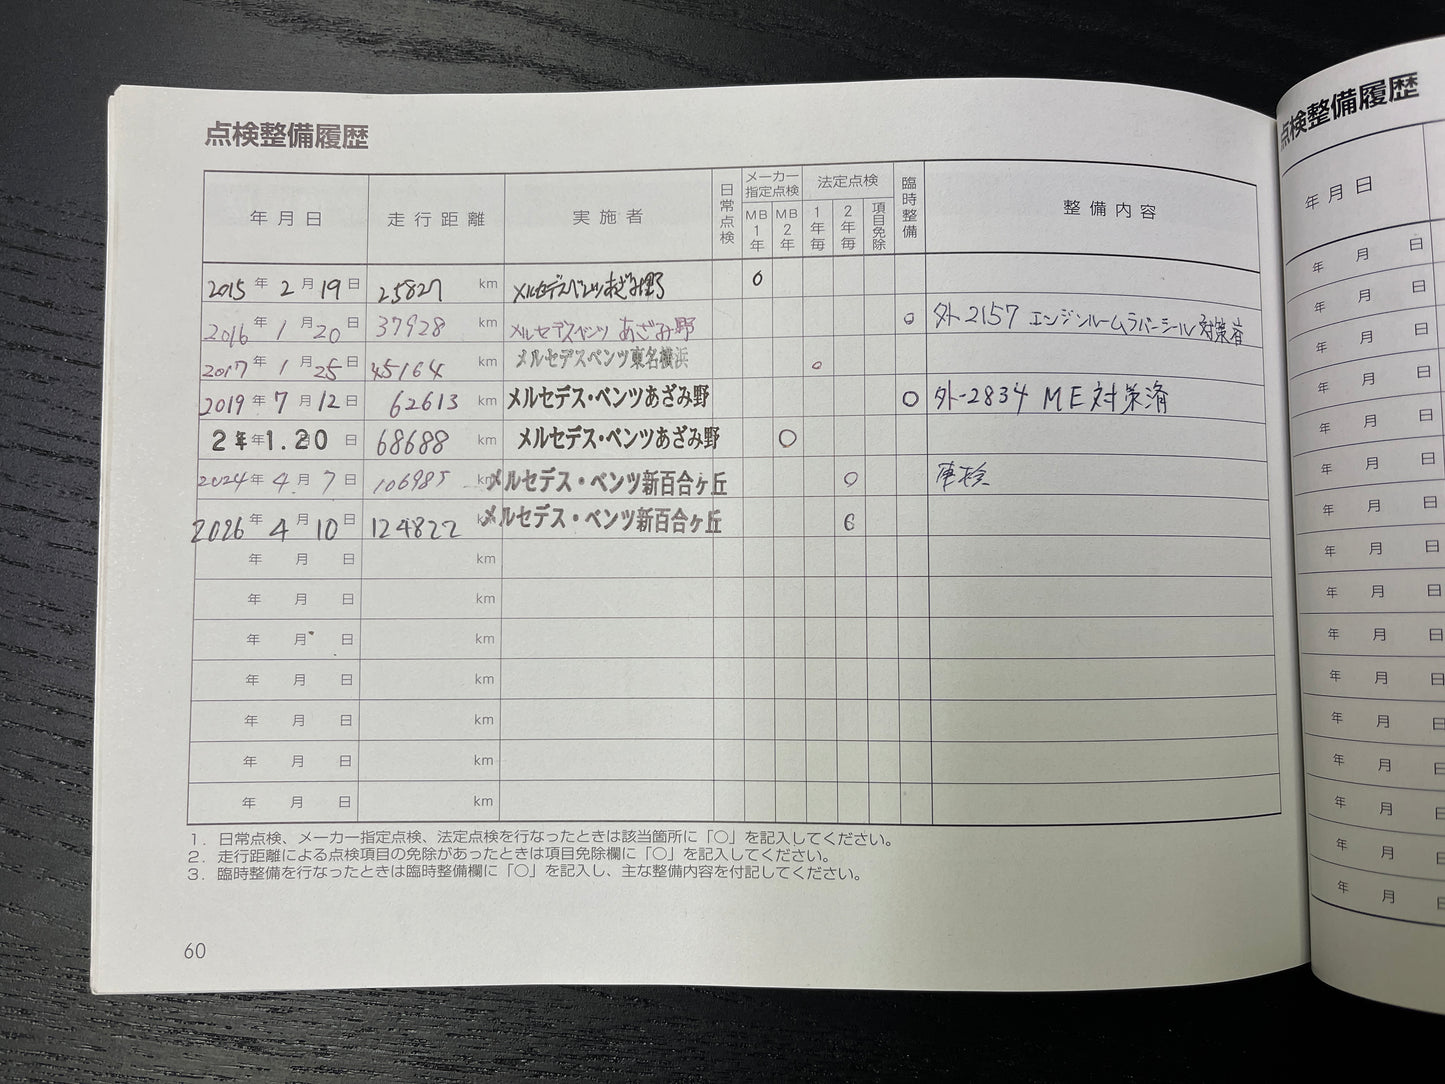 点検整備履歴
年月日 走行距離 実施者 日常点検 メーカー指定点検 MB1年 MB2年 法定点検 1年毎 2年毎 項目免除 臨時整備 整備内容
2015年 2月19日 25827 km メルセデスベンツあざみ野 ○
2016年 1月20日 37928 km メルセデスベンツ あざみ野 ○ 外2157 エンジンルームラバーシール対策済
2017年 1月25日 45164 km メルセデスベンツ東名横浜 ○
2019年 7月12日 62613 km メルセデス・ベンツあざみ野 ○ 外-2834 ME対策済
2年年1.20日 68688 km メルセデス・ベンツあざみ野 ○
2024年 4月 7日 106985 km メルセデス・ベンツ新百合ヶ丘 ○ 車検
2026年 4月10日 124822 km メルセデス・ベンツ新百合ヶ丘 ○
年 月 日 km
年 月 日 km
年 月 日 km
年 月 日 km
年 月 日 km
年 月 日 km
年 月 日 km
1. 日常点検、メーカー指定点検、法定点検を行なったときは該当箇所に「○」を記入してください。
2. 走行距離による点検項目の免除があったときは項目免除欄に「○」を記入してください。
3. 臨時整備を行なったときは臨時整備欄に「○」を記入し、主な整備内容を付記してください。
60
点検整備履歴
年月日
年 月 日
年 月 日
年 月 日
年 月 日
年 月 日
年 月 日
年 月 日
年 月 日
年 月 日
年 月 日
年 月 日
年 月 日
年 月 日
年 月 日
年 月 日
年 月 日